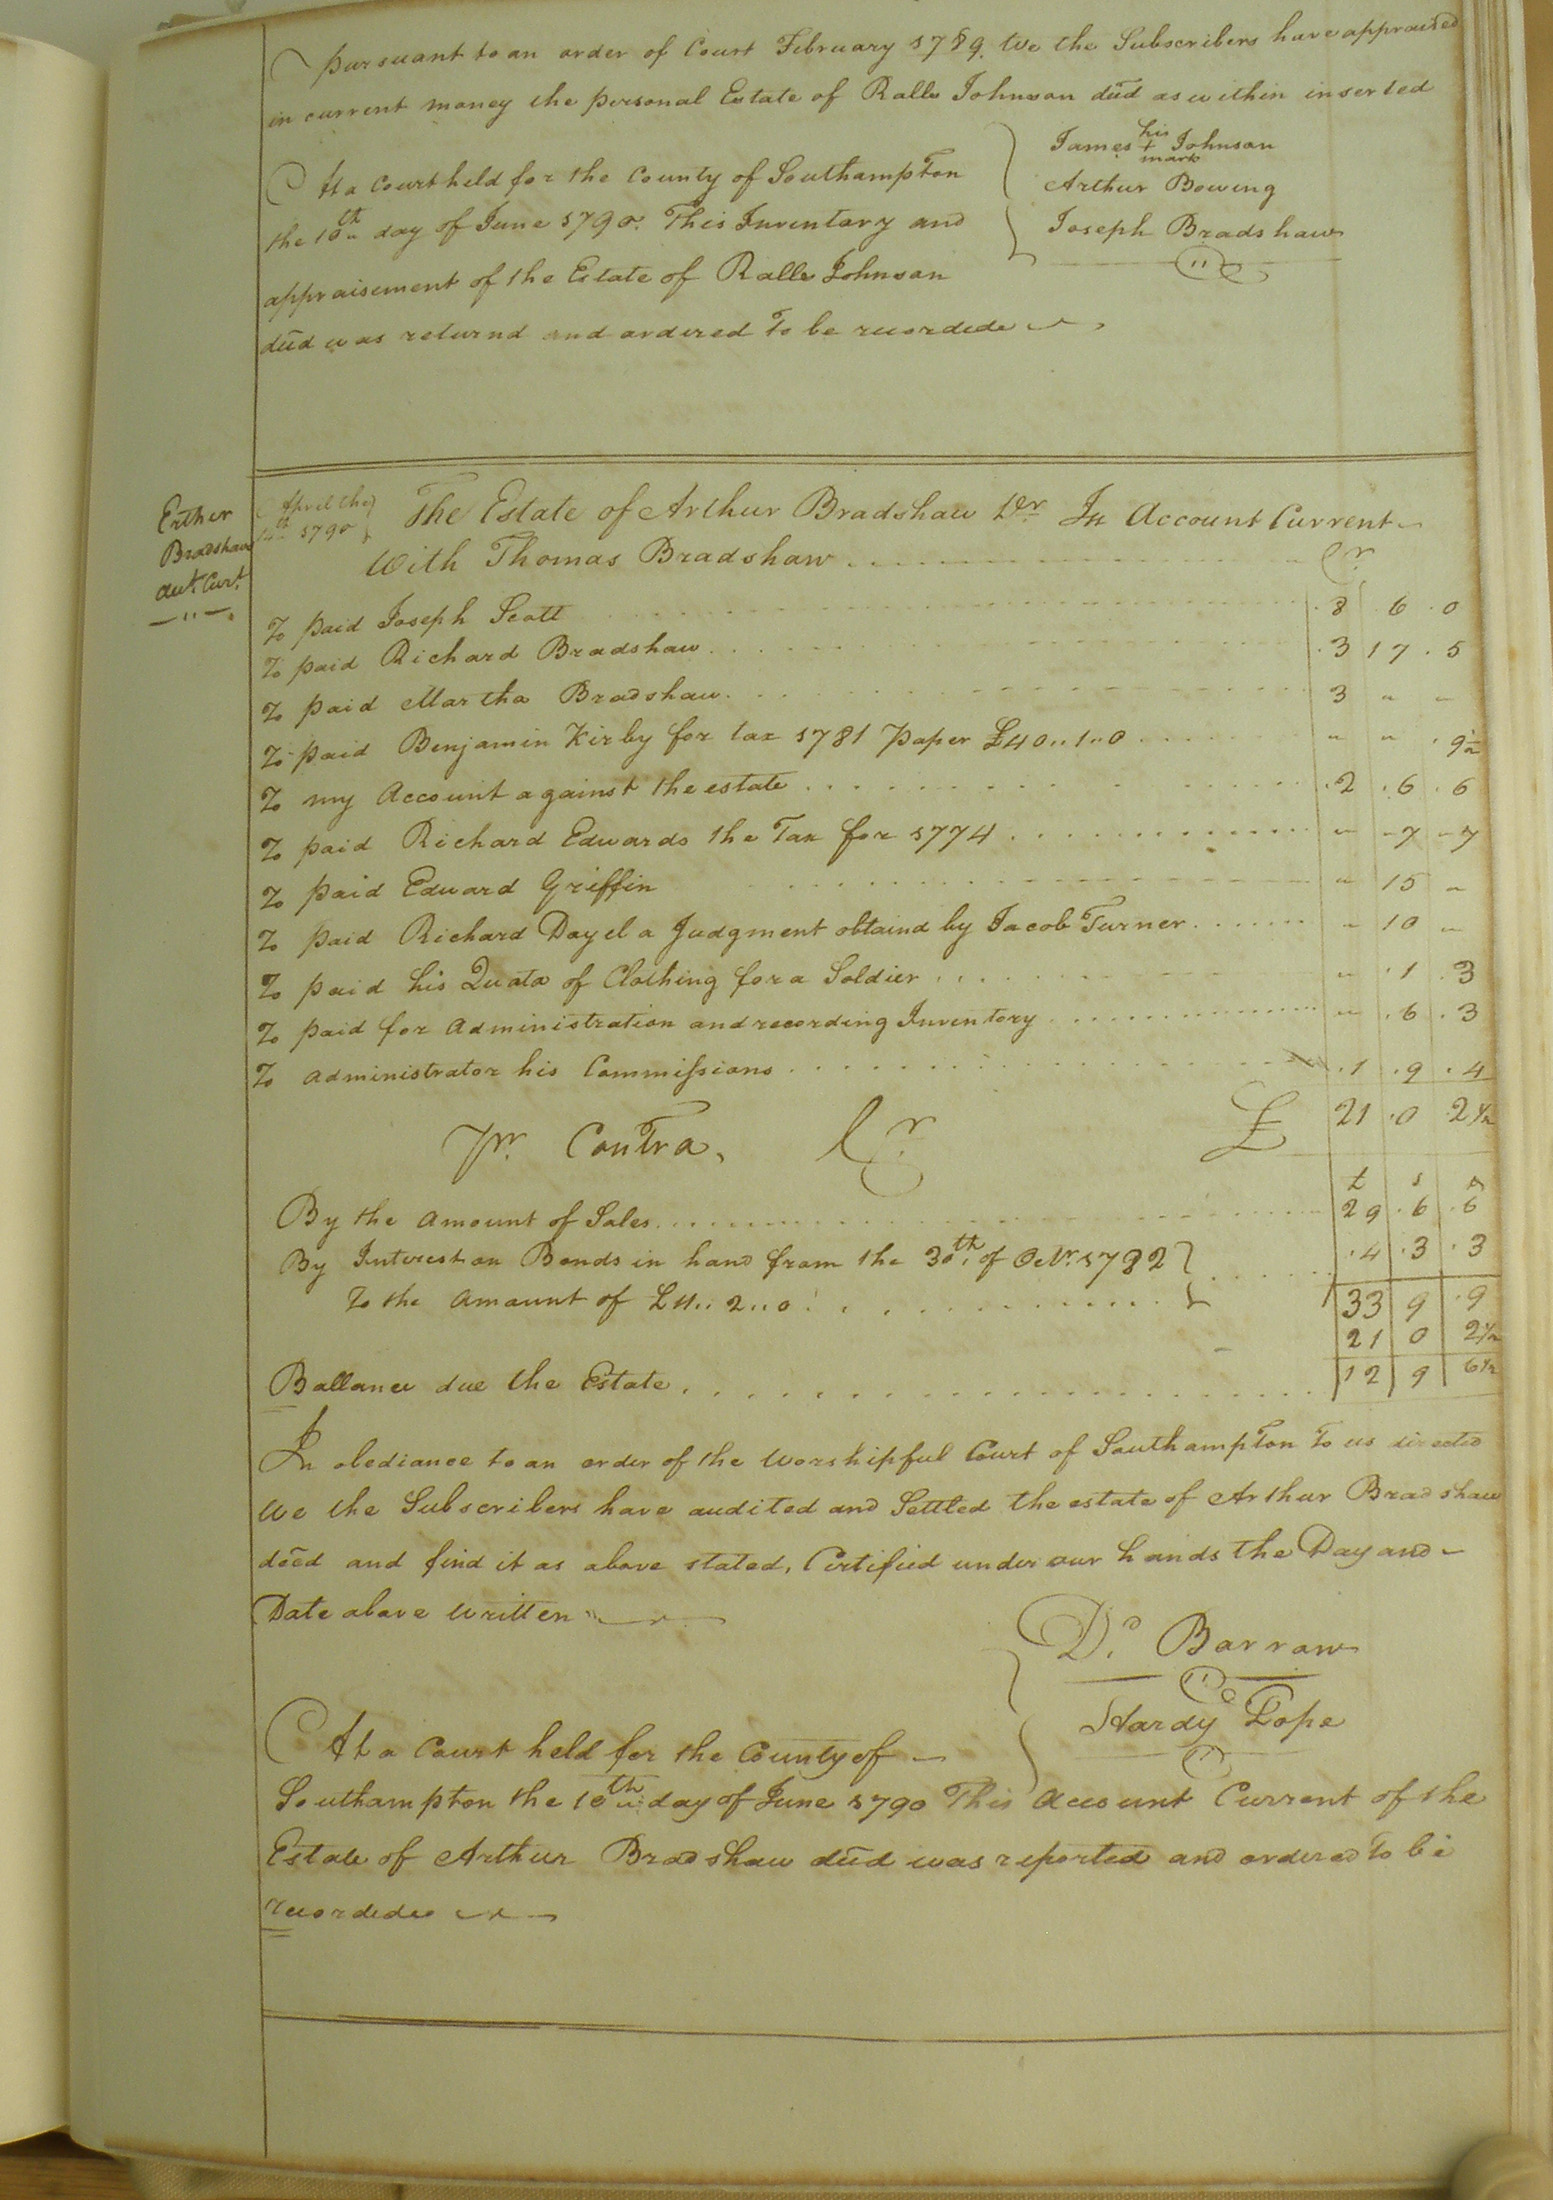 Pursuant to an order of Court February 1789. We the Subscribers have appraised
in current money the personal Estate of Ralls Johnson dēd as within inserted
James his + mark Johnson
Arthur Bowing
Joseph Bradshaw
At a Court held for the County of Southampton
the 10th day of June 1790. This Inventory and
appraisement of the Estate of Ralls Johnson
dēd was returnd and ordered to be recorded
Erther
Bradshaw
Acct. Curt.
April the
14th 1790
The Estate of Arthur Bradshaw Dr In Account Current
With Thomas Bradshaw Cr
To paid Joseph Scott 8 . 6 . 0
To paid Richard Bradshaw 3 17 . 5
To paid Martha Bradshaw 3 " "
To paid Benjamin Kirby for tax 1781 Paper £40..1..0 " " . 9½
To my Account against the estate . 2 . 6 . 6
To paid Richard Edwards the Tax for 1774 " 7 7
To paid Edward Griffin " 15 "
To paid Richard Dayel a Judgment obtaind by Jacob Turner " 10 "
To paid his Quata of Clothing for a Soldier " . 1 . 3
To paid for administration and recording Inventory " . 6 . 3
To administrator his Commissions . 1 . 9 . 4
£ 21 . 0 . 2½
Pr. Contra, Cr.
£ s d
By the amount of Sales 29 . 6 . 6
By Interest on Bonds in hand from the 30th of Octr. 1782 . 4 . 3 . 3
To the amount of £11.. 2..0
33 9 . 9
21 0 2½
Ballance due the Estate 12 9 6½
In obediance to an order of the Worshipful Court of Southampton To us directed
We the Subscribers have audited and Settled the estate of Arthur Bradshaw
deēd and find it as above stated, Certified under our hands the Day and
Date above written
Do. Barrow
Hardy Pope
At a Court held for the County of
Southampton the 10th day of June 1790 This Account Current of the
Estate of Arthur Bradshaw dēd was reported and ordered to be
recorded